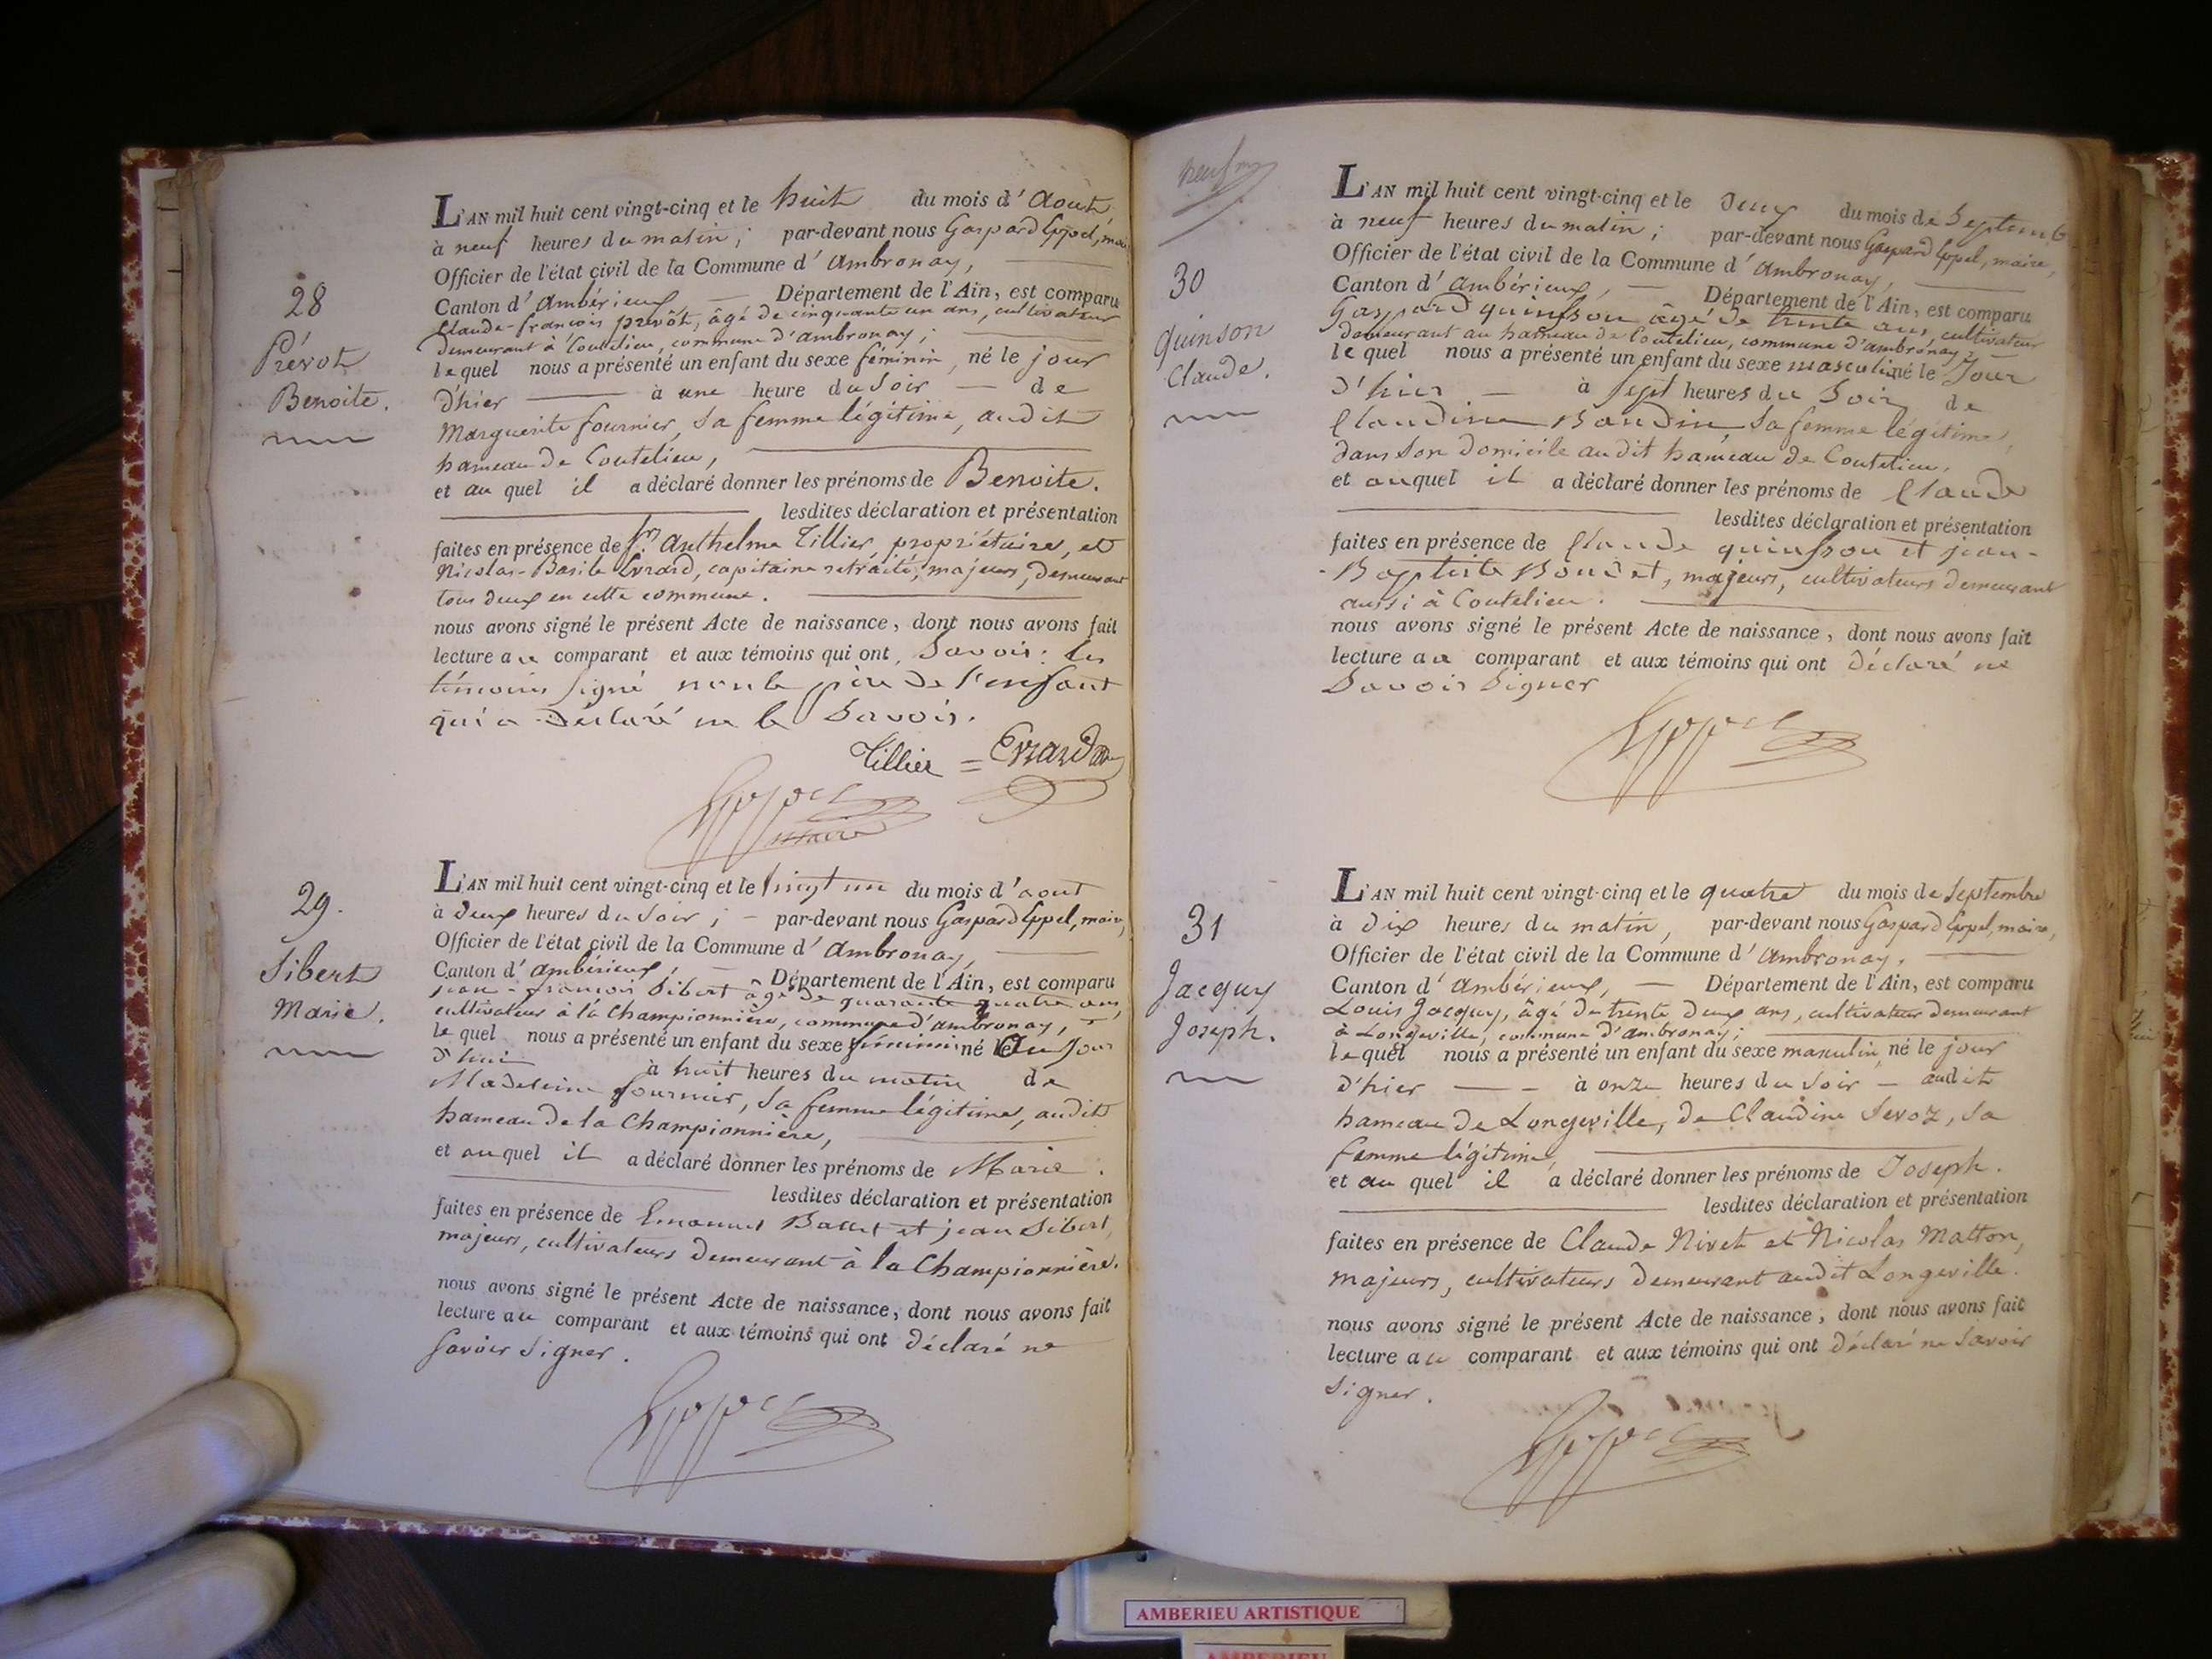 28
Prévot
Benoite.
L'AN mil huit cent vingt-cinq et le huit du mois d'Aout
à neuf heures du matin; par-devant nous Gaspard Eppel, maire
Officier de l'état civil de la Commune d'ambronay,
Canton d'ambérieux, Département de l'Ain, est comparu
Claude-françois prevôt, âgé de cinquante un ans, cultivateur
demeurant à Coutelieu, commune d'ambronay;
lequel nous a présenté un enfant du sexe féminin, né le jour
d'hier à une heure du soir de
Marguerite fournier, sa femme légitime, audit
hameau de Coutelieu,
et au quel il a déclaré donner les prénoms de Benoite.
lesdites déclaration et présentation
faites en présence de Sr. Anthelme Tillier, propriétaire, et
Nicolas-Basile Evrard, capitaine retraité, majeurs, demeurant
tous deux en cette commune.
nous avons signé le présent Acte de naissance, dont nous avons fait
lecture au comparant et aux témoins qui ont, Savoir: les
témoins signé non le père de l'enfant
qui a déclaré ne le Savoir.
Tillier = Evrard
Eppel
maire
29.
Sibert
Marie.
L'AN mil huit cent vingt-cinq et le vingt un du mois d'aout
à deux heures du soir; par-devant nous Gaspard Eppel, maire,
Officier de l'état civil de la Commune d'ambronay,
Canton d'ambérieux, Département de l'Ain, est comparu
jean-françois Sibert âgé de quarante quatre ans,
cultivateur à la Championnière, commune d'ambronay,
lequel nous a présenté un enfant du sexe féminin né le Jour
d'hui à huit heures du matin de
Madeleine fournier, sa femme légitime, audit
hameau de la Championnière,
et auquel il a déclaré donner les prénoms de Marie.
lesdites déclaration et présentation
faites en présence de Emanuel Ballet et jean Sibert,
majeurs, cultivateurs demeurant à la Championnière.
nous avons signé le présent Acte de naissance, dont nous avons fait
lecture au comparant et aux témoins qui ont déclaré ne
savoir signer.
Eppel
30
quinson
Claude.
L'AN mil huit cent vingt-cinq et le Deux du mois de Septemb
à neuf heures du matin; par-devant nous Gaspard Eppel, maire,
Officier de l'état civil de la Commune d'ambronay,
Canton d'ambérieux, Département de l'Ain, est comparu
Gaspard quinson âgé de trente ans, cultivateur
demeurant au hameau de Coutelieu, commune d'ambronay;
lequel nous a présenté un enfant du sexe masculin né le Jour
d'hier à sept heures du Soir de
Claudine Bondin, sa femme légitime,
dans son domicile audit hameau de Coutelieu,
et auquel il a déclaré donner les prénoms de Claude
lesdites déclaration et présentation
faites en présence de Claude quinson et jean-
Baptiste Boudet, majeurs, cultivateurs demeurant
aussi à Coutelieu.
nous avons signé le présent Acte de naissance, dont nous avons fait
lecture au comparant et aux témoins qui ont déclaré ne
Savoir Signer
Eppel
31
Jacquy
Joseph.
L'AN mil huit cent vingt-cinq et le quatre du mois de Septembre
à dix heures du matin, par-devant nous Gaspard Eppel, maire,
Officier de l'état civil de la Commune d'ambronay,
Canton d'ambérieux, Département de l'Ain, est comparu
Louis Jacquy, âgé de trente deux ans, cultivateur demeurant
à Longeville, commune d'ambronay;
lequel nous a présenté un enfant du sexe masculin, né le jour
d'hier à onze heures du soir audit
hameau de Longeville, de Claudine Sevoz, sa
femme légitime,
et au quel il a déclaré donner les prénoms de Joseph.
lesdites déclaration et présentation
faites en présence de Claude Nivet et Nicolas Matton,
majeurs, cultivateurs demeurant audit Longeville.
nous avons signé le présent Acte de naissance, dont nous avons fait
lecture au comparant et aux témoins qui ont déclaré ne Savoir
signer.
Eppel
AMBERIEU ARTISTIQUE
AMBERIEU